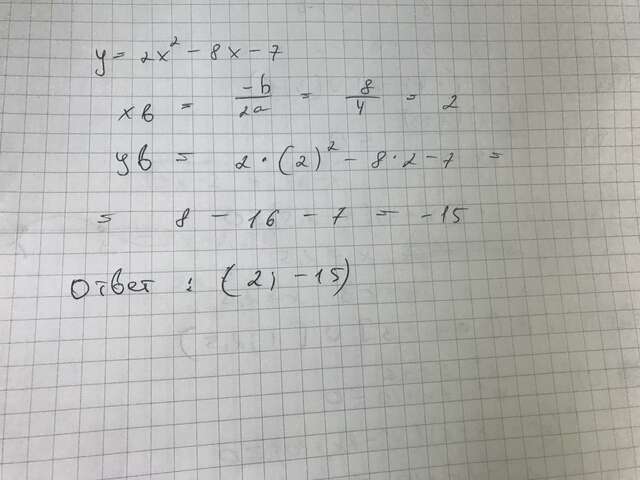 y = 2x² - 8x - 7
xв = -b/2a = 8/4 = 2
yв = 2·(2)² - 8·2 - 7 =
= 8 - 16 - 7 = -15
Ответ : (2; -15)